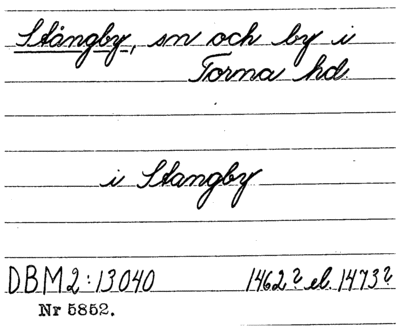 Stångby, sn och by i
Torna hd.
i Stangby
DBM2:13040 1462? el. 1473?
Nr 5852.